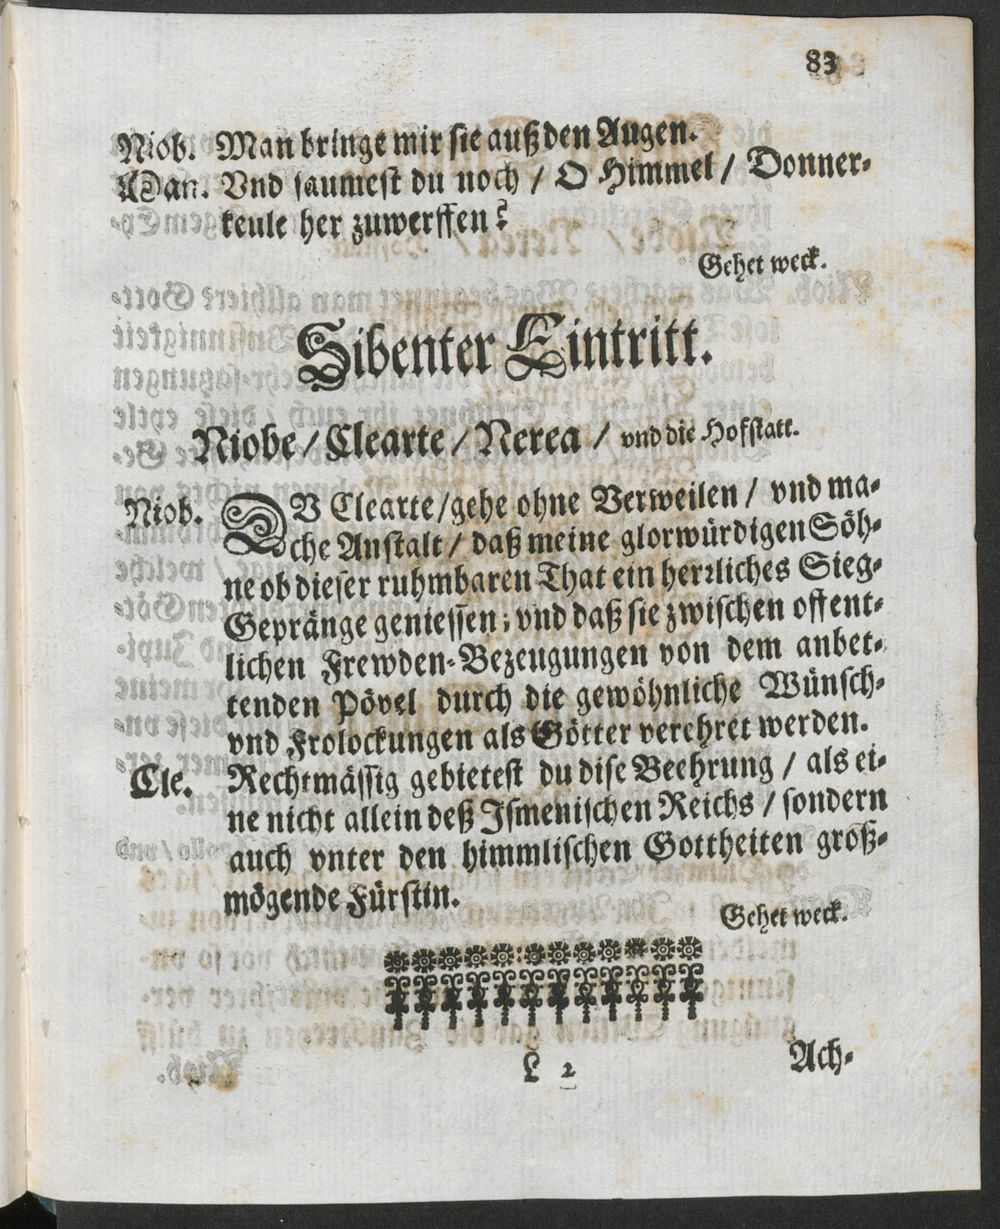 83
Niob. Man bringe mir sie auß den Augen.
Man. Vnd saumest du noch / O Himmel / Donner-
keule her zuwerffen?
Gehet weck.
Sibenter Eintritt.
Niobe / Clearte / Nerea / vnd die Hofstatt.
Niob. DV Clearte / gehe ohne Verweilen / vnd ma-
che Anstalt / daß meine glorwürdigen Söh-
ne ob dieser ruhmbaren That ein herrliches Sieg-
Gepränge geniessen; vnd daß sie zwischen offent-
lichen Frewden-Bezeugungen von dem anbet-
tenden Pövel durch die gewöhnliche Wünsch-
vnd Frolockungen als Götter verehret werden.
Cle. Rechtmässig gebietest du dise Beehrung / als ei-
ne nicht allein deß Ismenischen Reichs / sondern
auch vnter den himmlischen Gottheiten groß-
mögende Fürstin.
Gehet weck.
L 2
Ach-